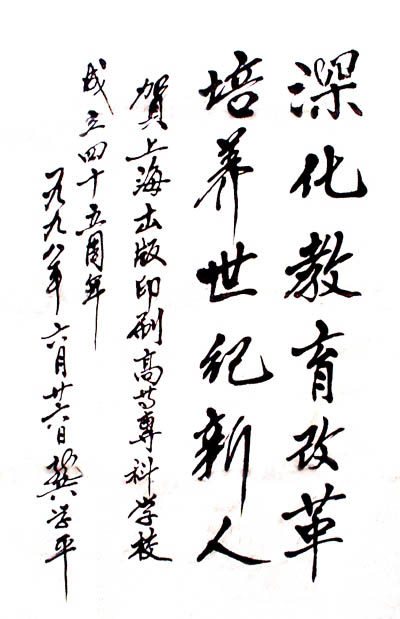 深化教育改革
培养世纪新人
賀上海出版印刷高等專科学校
成立四十五周年
一九九八年六月廿六日龚学平